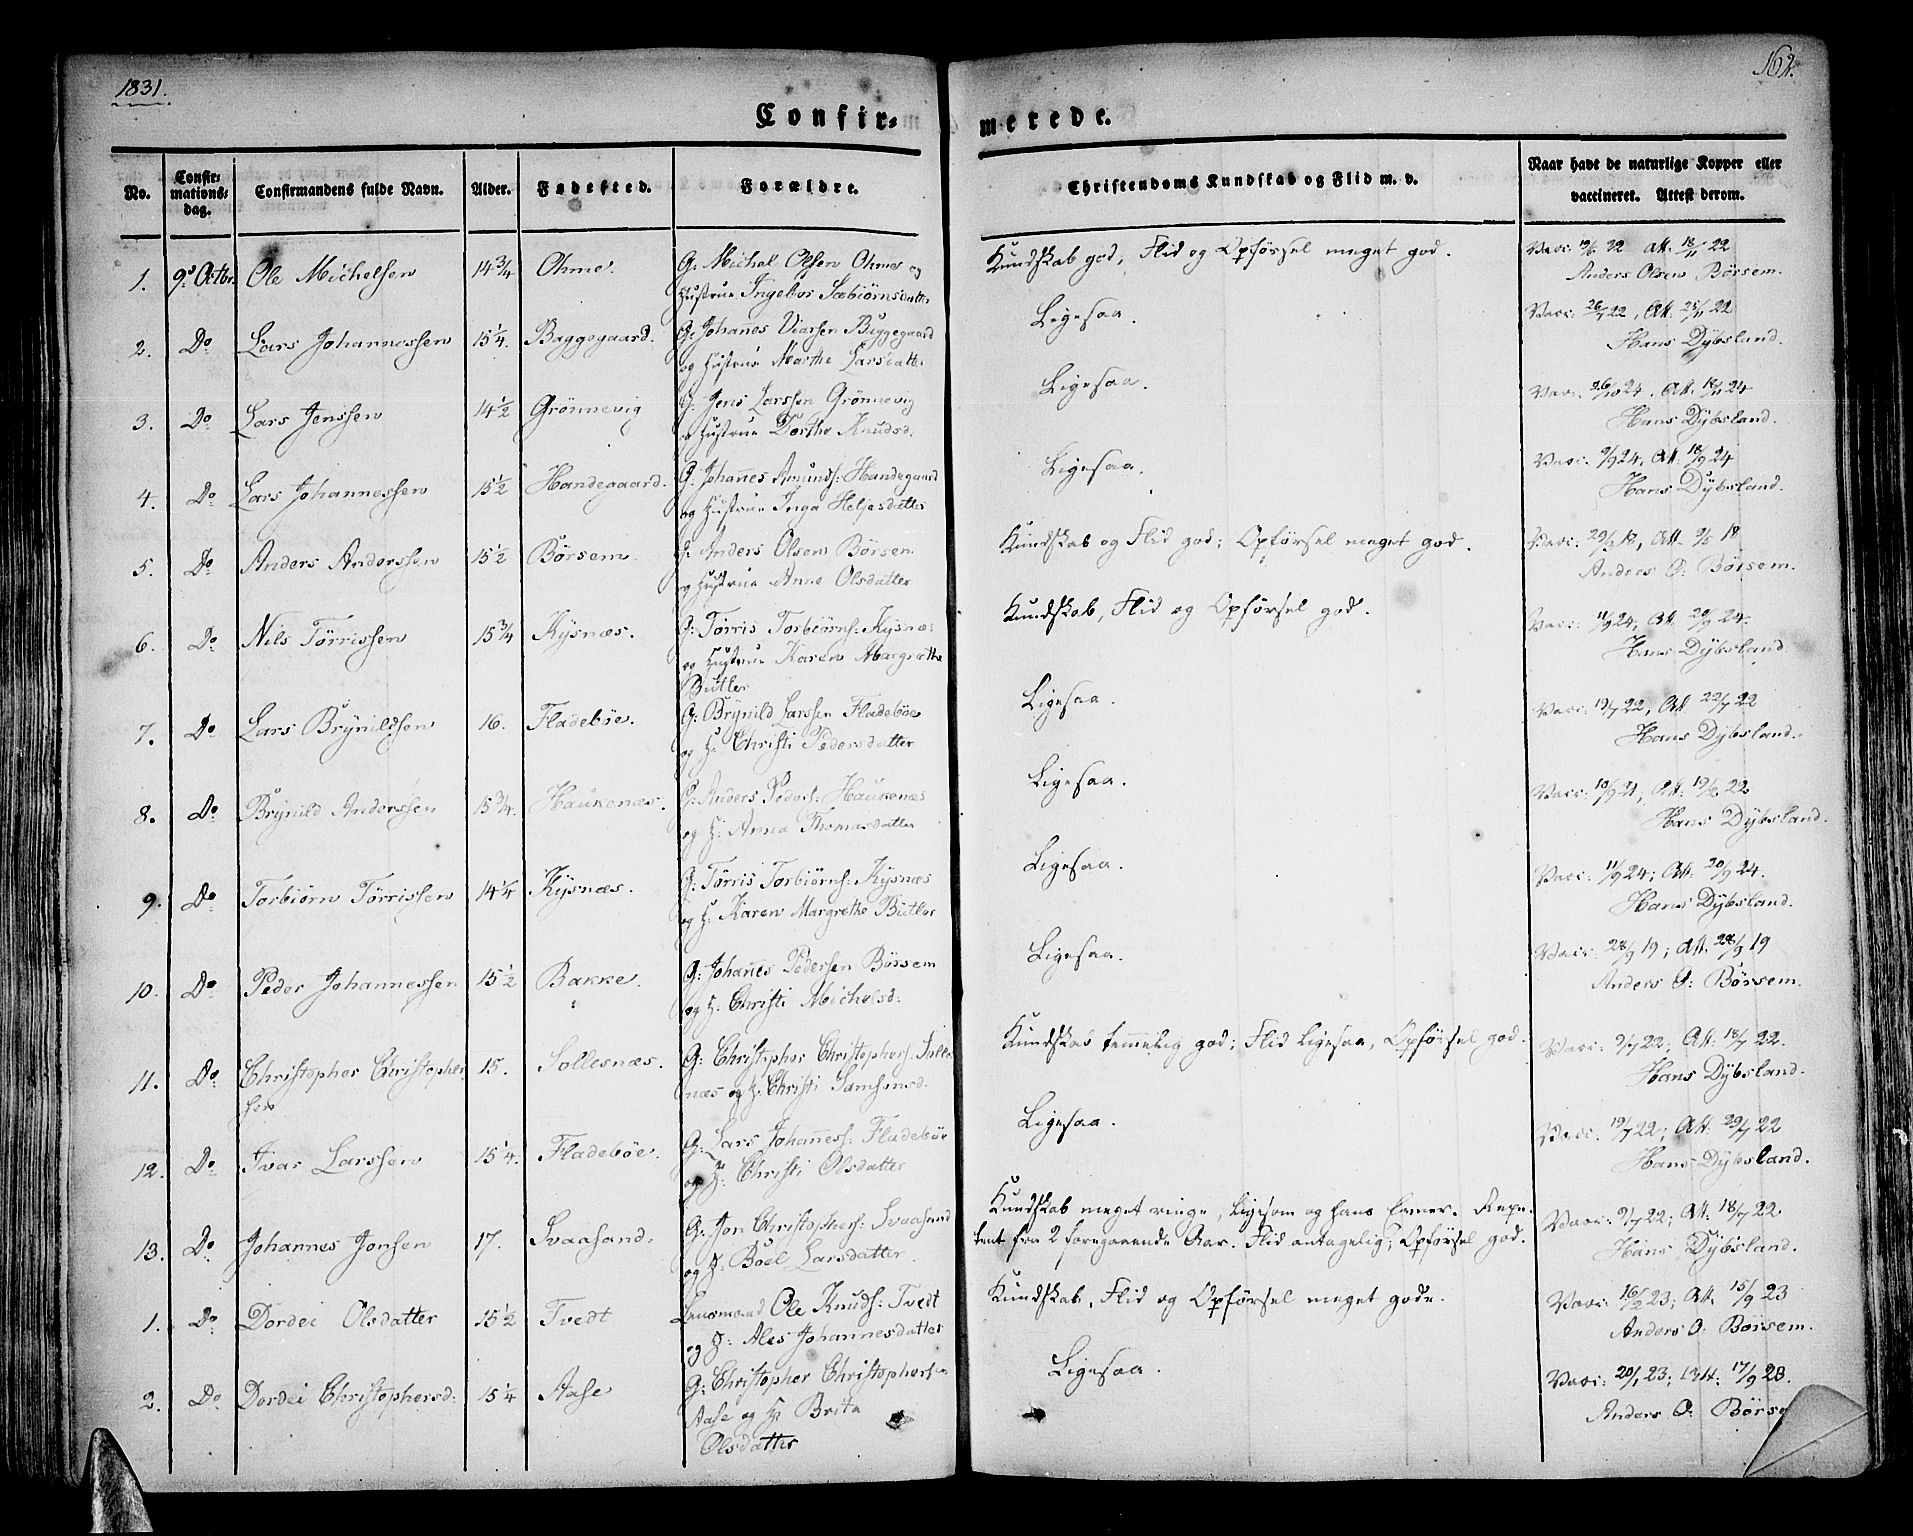 1831.
162.
Confir=
merede.
No.
Confir-
mations-
dag.
Confirmandens fulde Navn.
Alder.
Fødested.
Forældre.
Christendoms Kundskab og Flid m. v.
Naar havt de naturlige Kopper eller
vaccineret. Attest derom.
1. 9de Octbr. Ole Michelsen 14 3/4 Ohme. G: Michel Olsen Ohme og
Hustrue Ingebor
Kundskab god, Flid og Opførsel meget god.
Vacc: 19/6 22 Att. 18/11 22
Anders Olsen Børsem.
2. Do Lars Johannessen 15 1/4. Baggegaard. G: Johanes Viarsen Buggegaard
og Hustrue Marthe Larsdatt:
Ligesaa.
Vacc: 26/7 22, Att. 25/11 22
Hans Dybsland.
3. Do Lars Jenssen 14 1/2 Grønnevig G: Jens Larssen Grønnevig
og Hustrue Dorthe Knudsd.
Ligesaa.
Vacc: 26/10 24. Att. 18/11 24
Hans Dybsland.
4. Do Lars Johannessen 15 1/2 Handegaard. G: Johanes Amunds: Handegaard
og Hustrue Inga Heljesdatter
Ligesaa.
Vacc: 9/9 24, Att. 18/9 24
Hans Dybsland.
5. Do Anders Anderssen 15 1/2 Børsem G: Anders Olsen Børsem
og Hustrue Anne Olsdatter
Kundskab og Flid god; Opførsel meget god.
Vacc: 29/3 18, Att. 9/5 18
Anders O: Børsem.
6. Do Nils Tørrissen 15 3/4 Kysnæs. G: Tørris Torbiørns: Kysnæs
og Hustrue Karen Margrethe
Butler
Kundskab, Flid og Opførsel god.
Vacc: 11/9 24, Att. 20/9 24.
Hans Dybsland
7. Do Lars Brynildsen 16. Fladebøe. G: Brynild Larssen Fladebøe
og H: Christi Pedersdatter
Ligesaa.
Vacc: 19/7 22, Att. 22/7 22
Hans Dybsland.
8. Do Brynild Anderssen 15 3/4. Haukenæs. G: Anders Peders: Haukenæs
og H: Anna Thomasdatter
Ligesaa.
Vacc: 10/9 21, Att. 19/2 22
Hans Dybsland.
9. Do Torbiørn Tørrissen 14 1/4 Kysnæs. G: Tørris Torbiørns: Kysnæs
og H: Karen Margrethe Butler
Ligesaa.
Vacc: 11/9 24; Att. 20/9 24.
Hans Dybsland.
10. Do Peder Johannessen 15 1/2 Bakke. G: Johanes Pedersen Børsem
og H: Christi Michelsd:
Ligesaa.
Vacc: 28/9 19; Att. 29/9 19
Anders O: Børsem.
11. Do Christopher Christopher
sen 15. Sollesnæs. G: Christopher Christophers: Solles
næs og H: Christi Samsonsd.
Kundskab temmelig god; Flid ligesaa, Opførsel god.
Vacc: 9/7 22; Att. 18/7 22.
Hans Dybsland.
12. Do Ivar Larssen 15 1/4. Fladebøe. G: Lars Johaness: Fladebøe
og H: Christi Olsdatter
Ligesaa.
Vacc: 19/7 22; Att. 29/7 22
Hans Dybsland.
13. Do Johannes Jonsen 17. Svaasand. G: Jon Christophers: Svaasand
og H: Boel Larsdatter.
Kundskab meget ringe, ligesom og hans Evner. Repe-
tent fra 2 foregaaende Aar. Flid antagelig; Opførsel god.
Vacc: 9/7 22; Att. 18/7 22
Hans Dybsland.
1. Do Dordei Olsdatter 15 1/2 Tvedt Lensmand Ole Knuds: Tvedt
og H: Ales Johannesdatter
Kundskab, Flid og Opførsel meget gode.
Vacc: 16/2 23; Att. 15/9 23
Anders O: Børsem.
2. Do Dordei Christophersd: 15 1/4 Aase G: Christopher Christophers:
Aase og H: Brita
Olsdatter
Ligesaa.
Vacc: 20/1 23; Att: 17/9 23.
Anders O: Børse